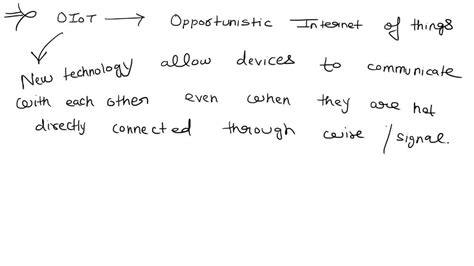 ⇒ OIOT → Opportunistic Internet of things
New technology allow devices to communicate
with each other even when they are not
directly connected through wire / signal.